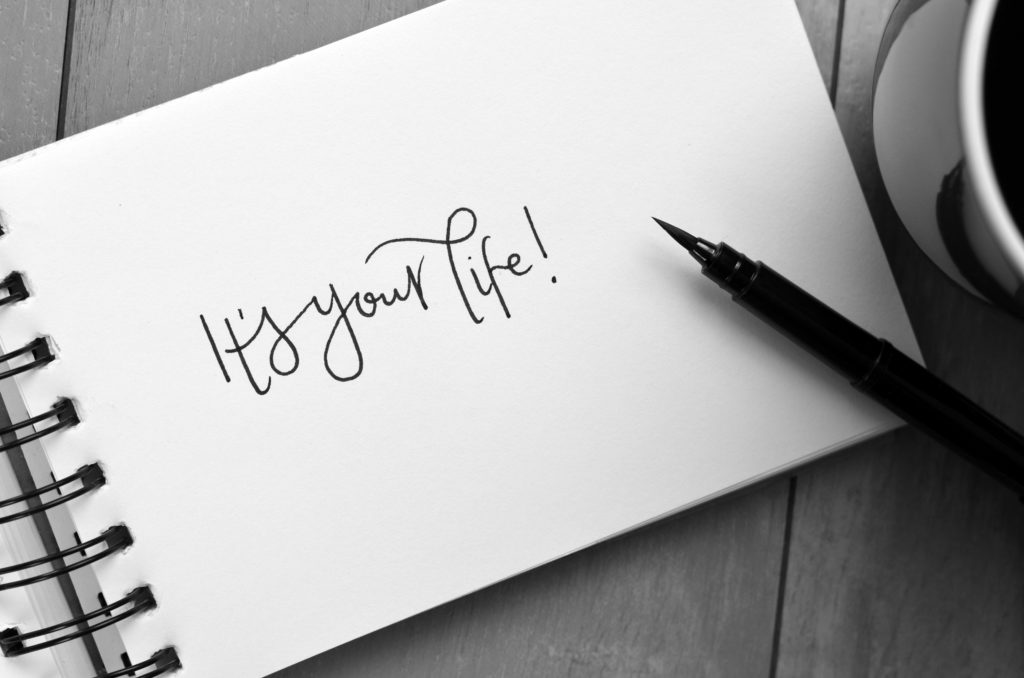 It's your life!